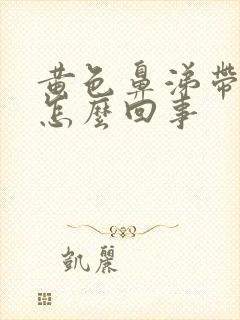 黃色鼻涕帶
怎麼回事
凱麗